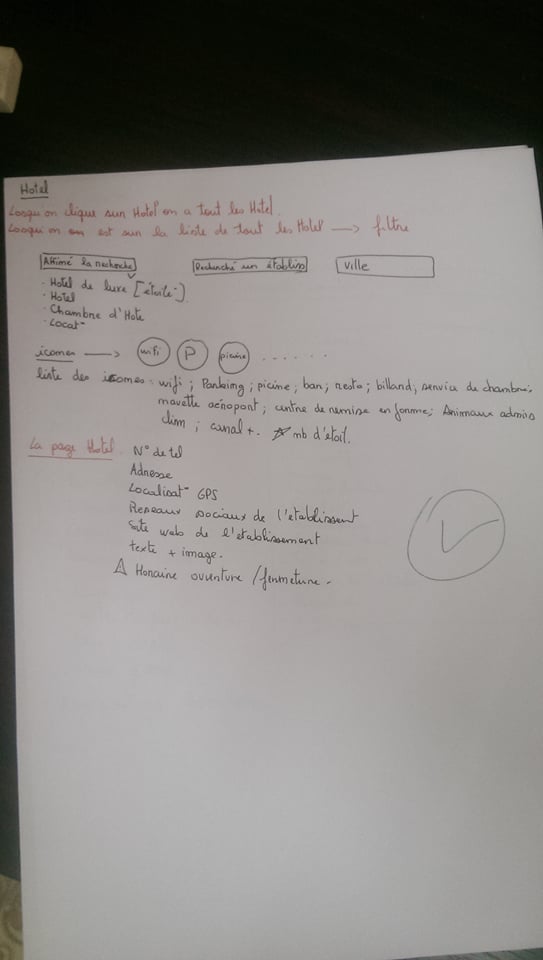 Hotel
Losqu'on clique sur Hotel on a tout les Hotel.
Losqu'on on est sur la liste de tout les Hotel → filtre
Affiné la recherche Recherché un établiss ville
· Hotel de luxe [étoile].
· Hotel
· Chambre d'Hote
· Locat°
icones → wifi P picine ......
liste des icones : wifi ; Parking ; picine ; bar ; resto ; billard ; service de chambre ;
navette aéroport ; centre de remise en forme ; Animaux admis
clim ; canal +. ☆ nb d'étoil.
La page Hotel. N° de tel
Adresse
Localisat° GPS
Reseaux sociaux de l'etablissent
Site web de l'etablissement
texte + image.
⚠ Horaire ouverture / fermeture.